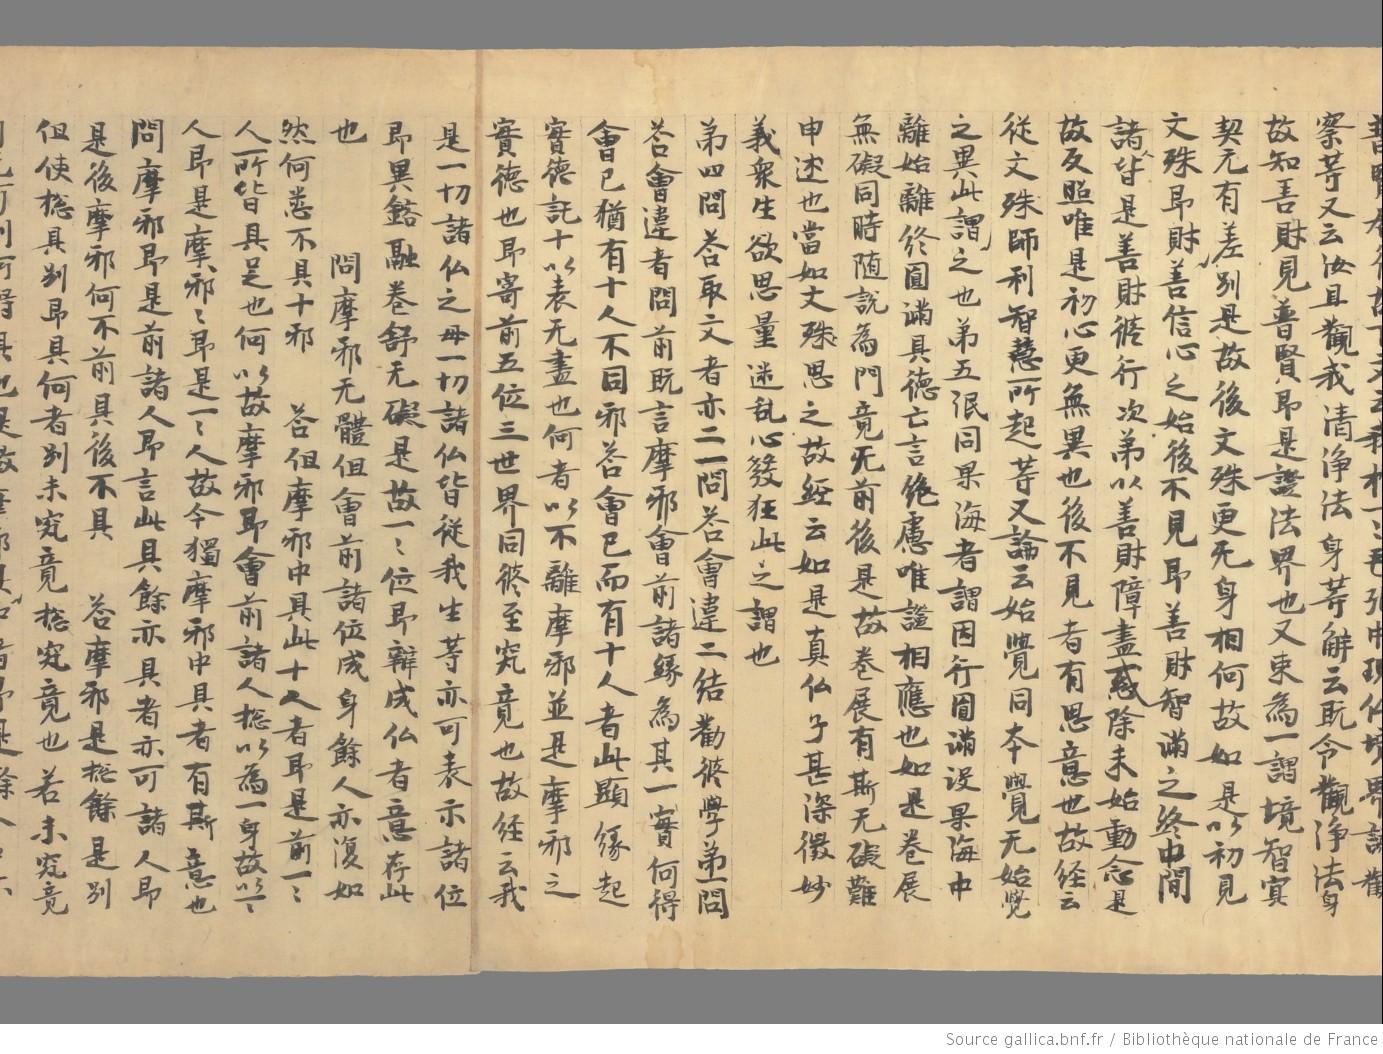 察等又云汝且觀我清淨法身等解云既令觀淨法身
故知善財見普賢即是證法界也又束為一謂境智冥
契无有差別是故後文殊更无身相何故如是以初見
文殊即財善信心之始後不見即善財智滿之終中間
諸皆是善財修行次第以善財障盡惑除未始動念是
故反照唯是初心更無異也後不見者有思意也故経云
従文殊師利智慧所起等又論云始覺同本覺无始覺
之異此謂之也第五泯同果海者謂因行圓滿没果海中
離始離終圓滿具徳亡言絶慮唯證相應也如是卷展
無礙同時随說為門竟无前後是故卷展有斯无礙難
申述也當如文殊思之故経云如是真仏子甚深微妙
義衆生欲思量迷乱心發狂此之謂也
第四問荅取文者亦二一問荅會違二結勸修學第一問
荅會違者問前既言摩邪會前諸縁為其一實何得
會已猶有十人不同邪荅會已而有十人者此顯縁起
實徳託十以表无盡也何者以不離摩邪並是摩邪之
實徳也即寄前五位三世界同修至究竟也故経云我
是一切諸仏之母一切諸仏皆従我生等亦可表示諸位
即異鎔融卷舒无礙是故一〻位即辯成仏者意存此
也 問摩邪无體但會前諸位成身餘人亦復如
然何悉不具十邪 荅但摩邪中具此十人者即是前一〻
人所皆具足也何以故摩邪即會前諸人捴以為一身故以〻
人即是摩〻邪〻即是一〻人故今獨摩邪中具者有斯意也
問摩邪即是前諸人即言此具餘亦具者亦可諸人即
是後摩邪何不前具後不具 荅摩邪是捴餘是別
但使捴具別即具何者別未究竟捴究竟也若未究竟